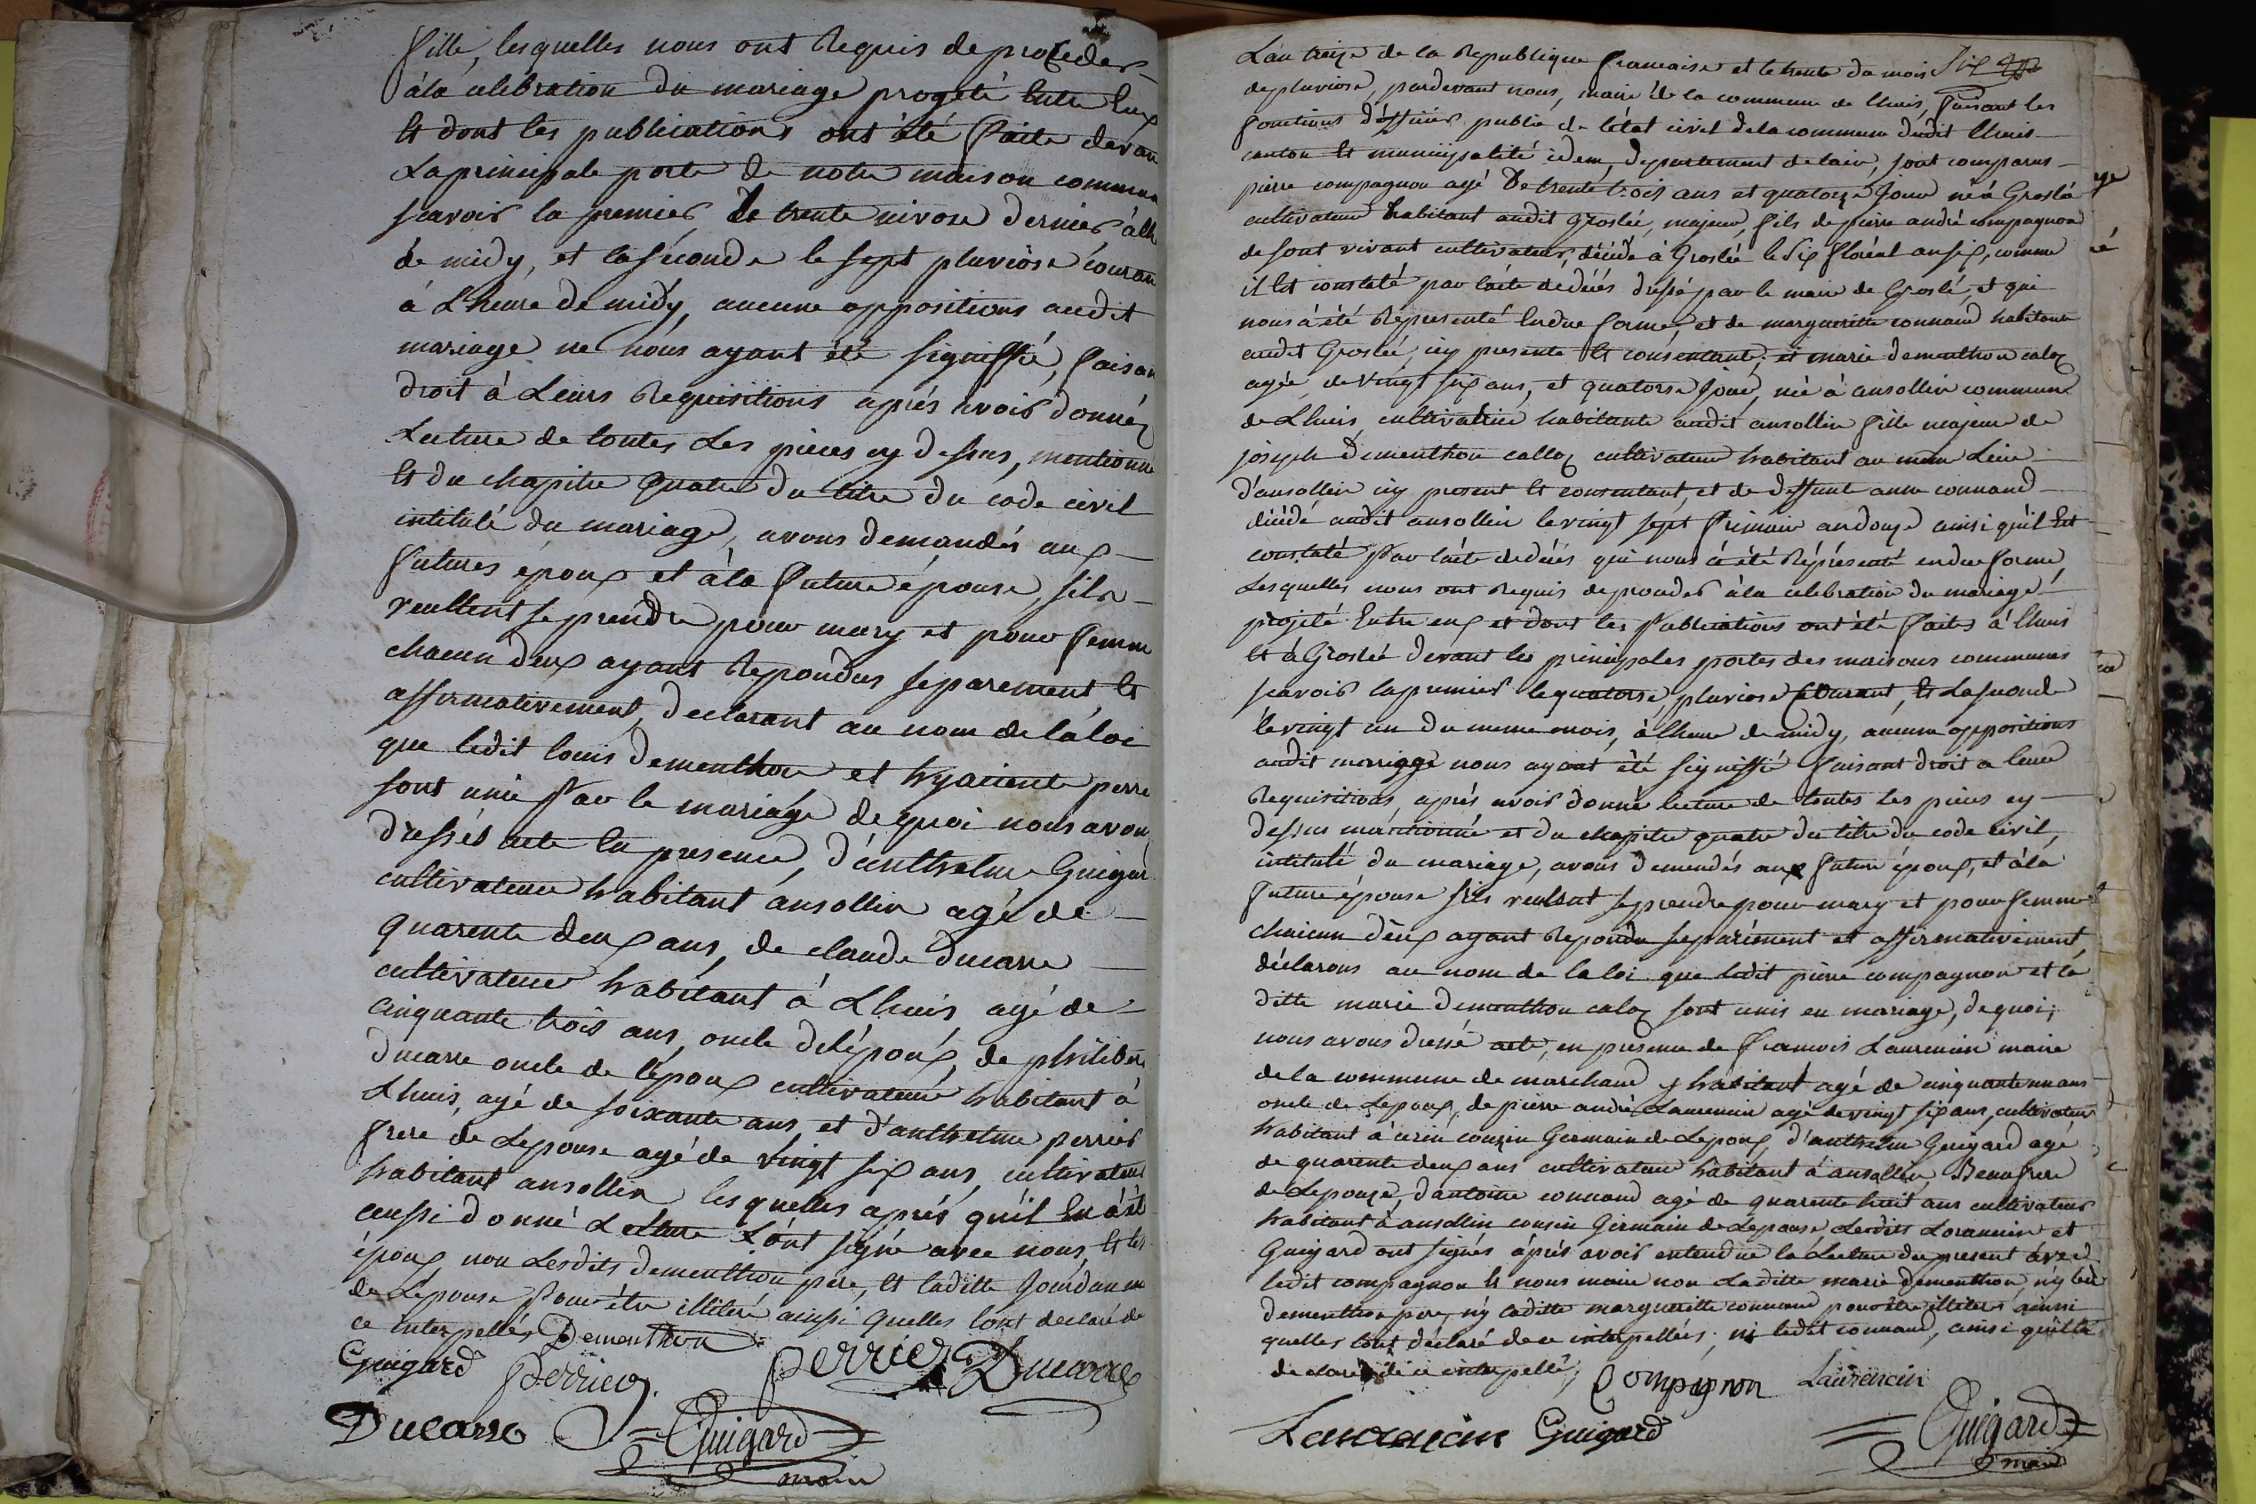 fille, lesquelles nous ont requis de proceder
à la celebration du mariage progeté entre eux
et dont les publications ont été faite devan
La principale porte de notre maison commun
scavoir la premier, le trente nivose dernier à lh
de midy, et la seconde le sept pluviôse couran
à L'heure de midy, aucune oppositions audit
mariage ne nous ayant été signiffié, faisan
droit à Leurs requisitions aprés avoir donnéz
Lecture de toutes Les pièces cy dessus, mentionné
et du chapitre quatre du titre du code civil
intitulé du mariage, avons demandés aux
futures époux et à la future épouse, sils
veullent se prendre pour mary et pour femme
chacun deux ayant repondus separement et
affirmativement, declarant au nom de la loi
que ledit louis dementhon et hyaciente perre
sont unie par le mariage de quoi nous avon
dressés acte en presence, d'anthelme Guigard
cultivateur habitant ansollin agé de
quarente deux ans, de claude Ducarre
cultivateur habitant à Lhuis agé de
cinquante trois ans, oncle de lépoux, de philiber
ducarre oncle de lépoux cultivateur habitant à
Lhuis, agé de soixante ans et d'anthelme perrier
frere de Lepouse agé de vingt six ans, cultivateur
habitant ansollin lesquelles aprés qu'il en a été
aussi donné Lecture L'ont signé avec nous, et les
époux non Lesdits dementhon pere, et laditte Jourdan me
de Lepouse pour être illiteré ainsi quelles lont declaré de
ce interpellés Dementhon
Guigard perrier perrier Ducarre
Ducarre Guigard
maire
L'an treize de la republique francaise et le trente du mois Six
de pluviose, pardevant nous, maire de la commune de lhuis, faisant les
fonctions d'officier public de l'état civil de la commune dudit lhuis
canton et municipalité idem, departement de lain, sont comparus
pierre compagnon agé de trente trois ans et quatorze Jour né à Groslé
cultivateur habitant audit groslée, majeur, fils de pierre andré compagnon
de sont vivant cultivateur, décédé à Groslée le six floréal an six, comme
il est constaté par lacte de décés dressé par le maire de Groslé, et qui
nous à été representé en due forme, et de margueritte connand habitante
audit Groslée, icy presente et consentante, et marie dementhon caloz
agée de vingt six ans, et quatorse Jour, née à ansollin commune
de Lhuis, cultivatrice habitante audit ansollin fille majeure de
joseph dementhon calloz cultivateur habitant au meme Lieu
d'ansollin icy present et consentant, et de deffunte anne connand
décédé audit ansollin le vingt sept frimaire an douze ainsi quil est
constaté par lacte de décés qui nous à été réprésenté en due forme,
Lesquelles nous ont requis de proceder à la celebration du mariage
projeté entre eux et dont les publications ont été faites à lhuis
et à Groslée devant les principales portes des maisons communes
scavoir la premier le quatorse pluviose courant, et La seconde
le vingt un du meme mois, à lheure de midy, aucune oppositions
audit mariage nous ayant été signiffié faisant droit a leur
requisitions, aprés avoir donné lecture de toutes les pièces cy
dessus mantionné et du chapitre quatre du titre du code civil,
intitulé du mariage, avons demendés aux future époux, et à la
future épouse s'ils veulent se prendre pour mary et pour femme
chaicun d'eux ayant repondu separément et affirmativement,
déclarons au nom de la loi que ledit pierre compagnon et la
ditte marie dementhon caloz sont unis en mariage, de quoi,
nous avons dressé acte, en presence de francois Laurencin maire
de la commune de marchand y habitant agé de cinquante un ans
oncle de Lepoux, de pierre andré Laurencin agé de vingt six ans, cultivateur
habitant à cerin couzin Germain de Lepoux, d'anthelme Guigard agé
de quarente deux ans cultivateur habitant à ansollin, Beaufrere
de Lepouze, d'antoine connand agé de quarente huit ans cultivateur
habitant à ansollin cousin Germain de Lepouse, Lesdits Lorancin et
Guigard ont signés aprés avoir entendue la Lecture du present avec
ledit compagnon et nous maire non Laditte marie dementhon, ny led
dementhon pere, ny laditte margueritte connand pour être illiteres ainsi
quelles lont declaré de ce interpellées, ni ledit connand, ainsi quil la
declaré de ce interpellé, Compagnon Laurencin
Laurancin Guigard Guigard
maire